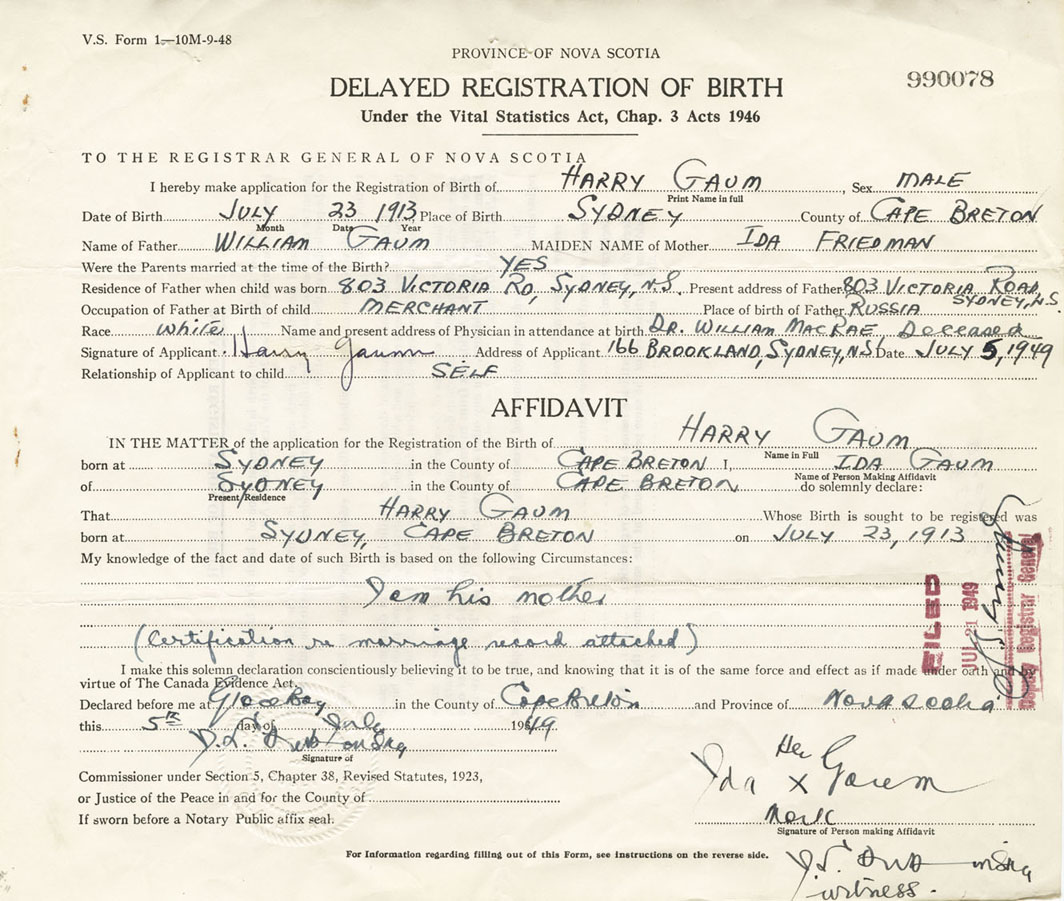 V.S. Form 1—10M-9-48
PROVINCE OF NOVA SCOTIA
DELAYED REGISTRATION OF BIRTH
990078
Under the Vital Statistics Act, Chap. 3 Acts 1946
TO THE REGISTRAR GENERAL OF NOVA SCOTIA
I hereby make application for the Registration of Birth of HARRY GAUM Sex MALE
Print Name in full
Date of Birth JULY 23 1913 Place of Birth SYDNEY County of CAPE BRETON
Month Date Year
Name of Father WILLIAM GAUM MAIDEN NAME of Mother IDA FRIEDMAN
Were the Parents married at the time of the Birth? YES
Residence of Father when child was born 803 VICTORIA RD, SYDNEY, N.S. Present address of Father 803 VICTORIA ROAD,
SYDNEY, N.S.
Occupation of Father at Birth of child MERCHANT Place of birth of Father RUSSIA
Race White Name and present address of Physician in attendance at birth DR. WILLIAM MACRAE Deceased
Signature of Applicant Harry Gaum Address of Applicant 166 BROOKLAND, SYDNEY, N.S. Date JULY 5, 1949
Relationship of Applicant to child SELF
AFFIDAVIT
IN THE MATTER of the application for the Registration of the Birth of HARRY GAUM
Name in Full
born at SYDNEY in the County of CAPE BRETON I, IDA GAUM
Name of Person Making Affidavit
of SYDNEY in the County of CAPE BRETON do solemnly declare:
Present Residence
That HARRY GAUM Whose Birth is sought to be registered was
born at SYDNEY, CAPE BRETON on JULY 23, 1913
My knowledge of the fact and date of such Birth is based on the following Circumstances:
I am his mother
(Certification re marriage record attached)
FILED
JUL 21 1949
Deputy Registrar General
I make this solemn declaration conscientiously believing it to be true, and knowing that it is of the same force and effect as if made under oath and by
virtue of The Canada Evidence Act.
Declared before me at Glace Bay in the County of Cape Breton and Province of Nova Scotia
this 5th day of July 1949
Signature of
Commissioner under Section 5, Chapter 38, Revised Statutes, 1923,
or Justice of the Peace in and for the County of
If sworn before a Notary Public affix seal.
Her
Ida X Gaum
Mark
Signature of Person making Affidavit
For Information regarding filling out of this Form, see instructions on the reverse side.
witness.